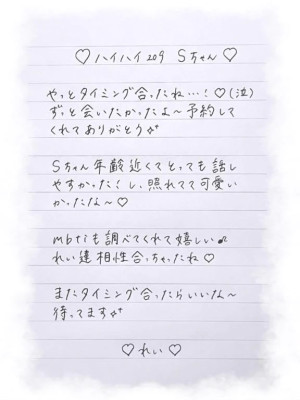 ♡ハイハイ209 Sちゃん♡
やっとタイミング合ったね…!♡(泣)
ずっと会いたかったよ〜予約して
くれてありがとう✨
Sちゃん年齢近くてとっても話し
やすかった!し、照れてて可愛い
かったな〜♡
mbtiも調べてくれて嬉しい♪
れい達相性合っちゃったね♡
またタイミング合ったらいいな〜
待ってます✨
♡れい♡